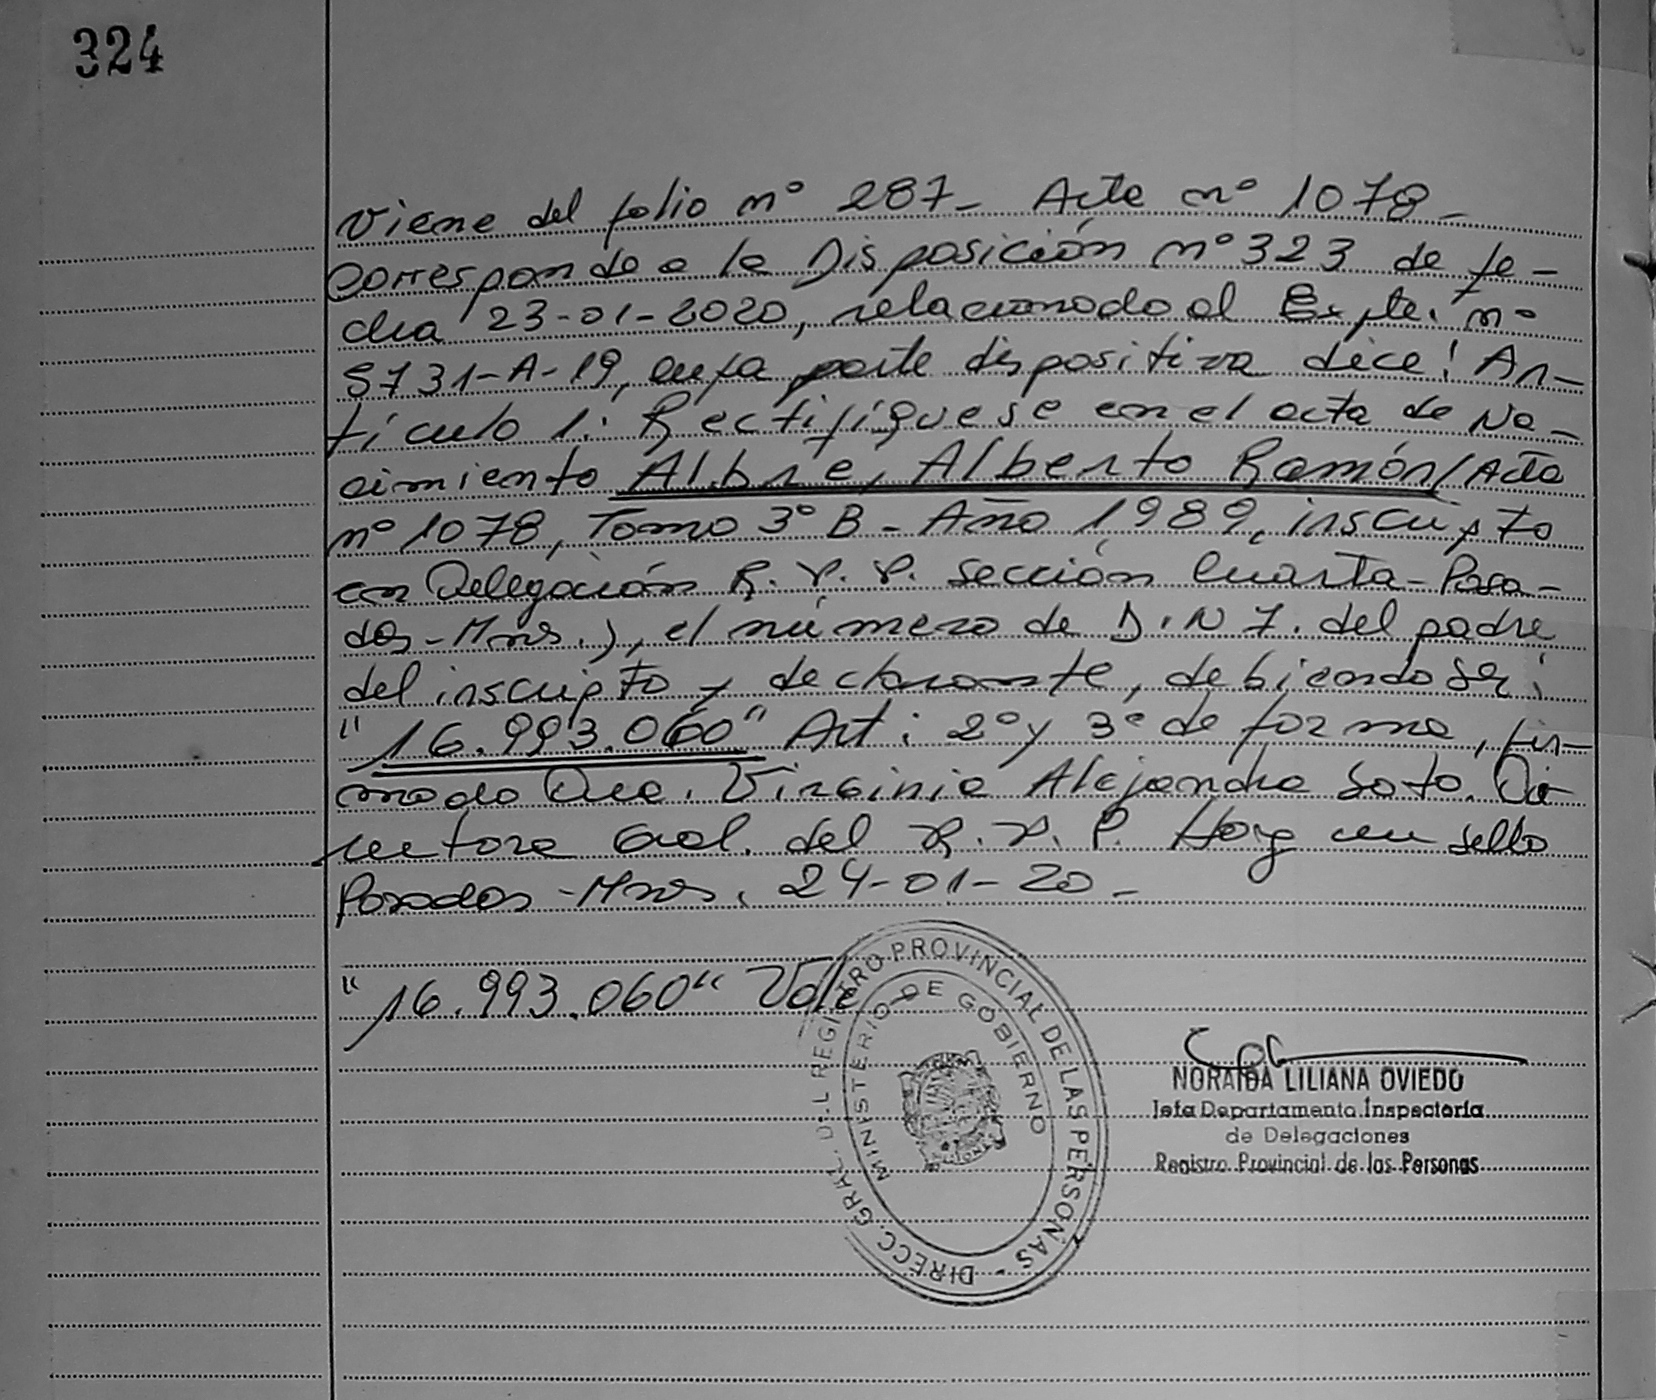 324
Viene del folio nº 287- Acta nº 1078-
Corresponde a la Disposición nº 323 de fe-
cha 23-01-2020, relacionado al Expte. nº
5731-A-19, cuya parte dispositiva dice: Ar-
tículo 1: Rectifíquese en el acta de Na-
cimiento Albre, Alberto Ramón (Acta
nº 1078, Tomo 3º B - Año 1989, inscripto
en Delegación R.P.P. Sección Cuarta-Posa-
das-Mnes.), el número de D.N.I. del padre
del inscripto y declarante, debiendo ser:
"16.993.060" Art: 2º y 3º de forma, fir-
mado Dra. Virginia Alejandra Soto. Di
rectora Gral. del R.P.P. Hay un sello
Posadas-Mnes. 24-01-20-
"16.993.060" Vale
DIRECC. GRAL. DEL REGISTRO PROVINCIAL DE LAS PERSONAS -
MINISTERIO DE GOBIERNO
NORAIDA LILIANA OVIEDO
Jefa Departamento Inspectoría
de Delegaciones
Registro Provincial de las Personas